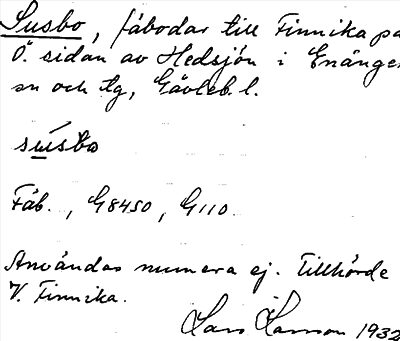 Susbo, fäbodar till Finnika på
Ö. sidan av Hedsjön i Enånger
sn och tg, Gävleb. l.
sùsbo
Fäb., G8450, G110.
Användas numera ej. Tillhörde
V. Finnika.
Lars Larsson 1932